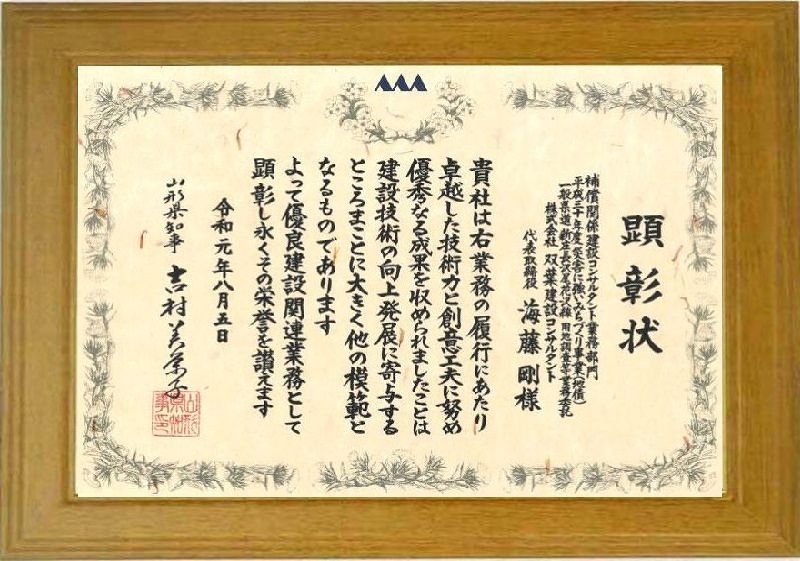 顕彰状
補償関係建設コンサルタント業務部門
平成三十年度災害に強いみちづくり事業(地債)
一般県道新庄長沢尾花沢線 用地調査等業務委託
株式会社 双葉建設コンサルタント
代表取締役 海藤 剛 様
貴社は右業務の履行にあたり
卓越した技術力と創意工夫に努め
優秀なる成果を収められましたことは
建設技術の向上発展に寄与する
ところまことに大きく他の模範と
なるものであります
よって優良建設関連業務として
顕彰し永くその栄誉を讃えます
令和元年八月五日
山形県知事 吉村美栄子